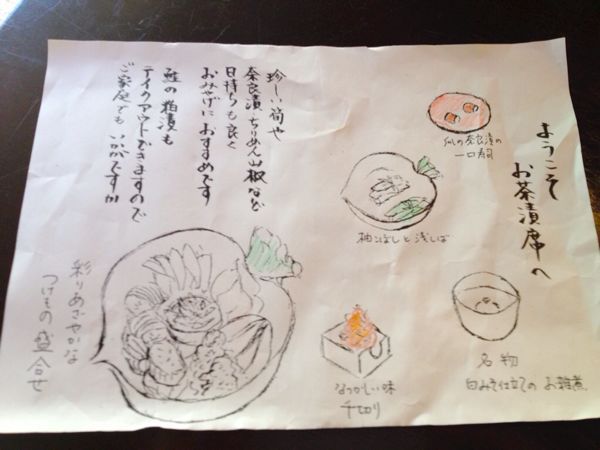 ようこそ
お茶漬席へ
瓜の奈良漬の
一口寿司
柚こぼしと浅しば
名物
白みそ仕立ての お雑煮
なつかしい味
千切り
珍しい筍や
奈良漬、ちりめん山椒など
日持ちも良く
おみやげにおすすめです
鮭の粕漬も
テイクアウトできますので
ご家庭でもいかがですか
彩りあざやかな
つけもの盛合せ